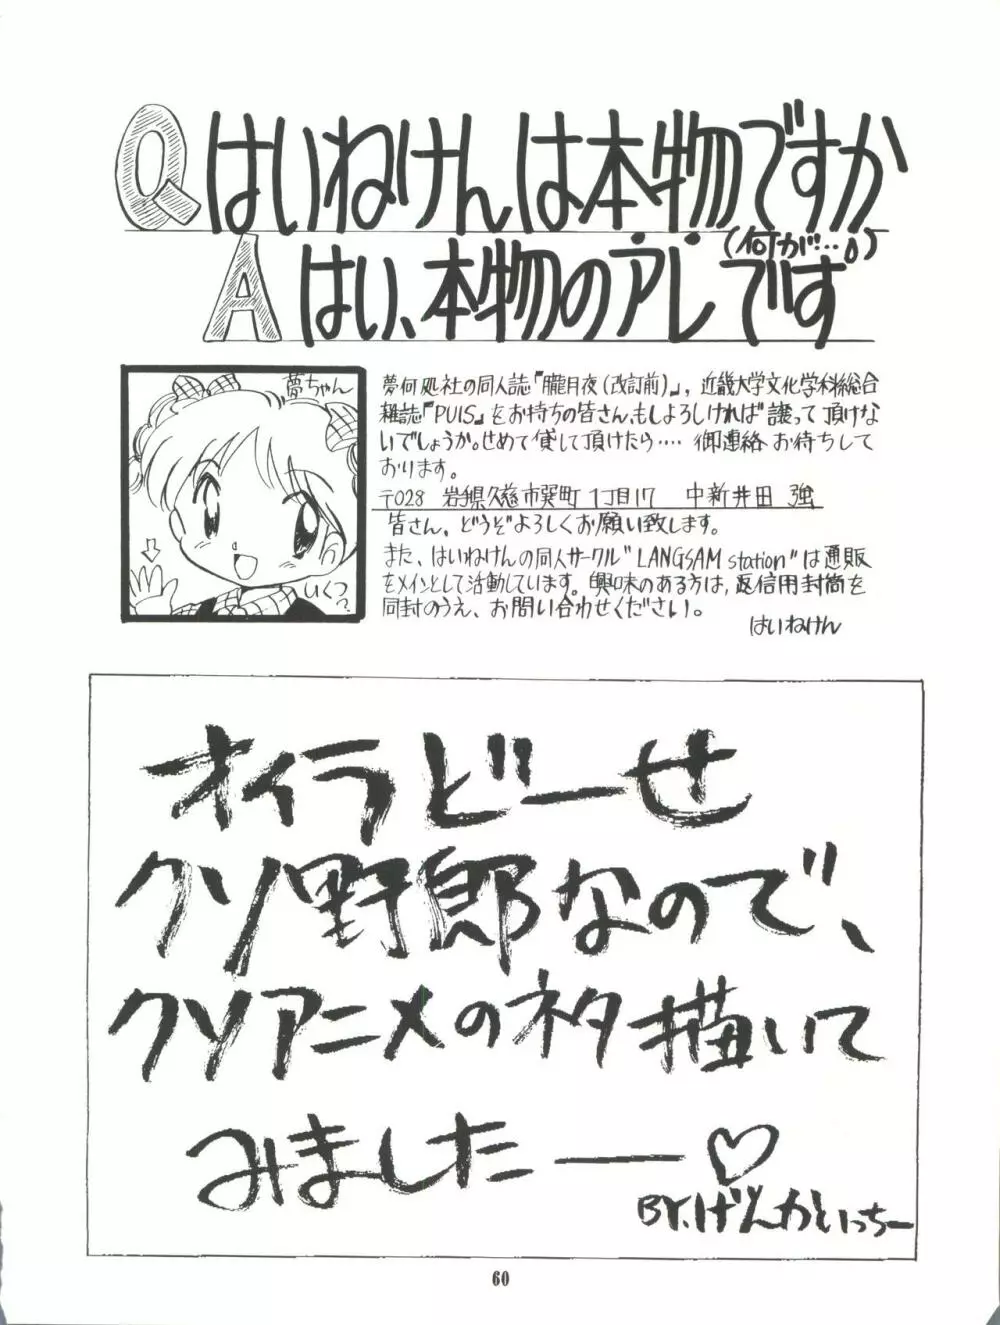 Q はいねけんは本物ですか
(何が…。)
A はい、本物のアレです
夢ちゃん
いくつ?
夢何処社の同人誌『朧月夜(改訂前)』, 近畿大学文化学科総合
雑誌『PUIS』をお持ちの皆さん、もしよろしければ譲って頂けな
いでしょうか。せめて貸して頂けたら…. 御連絡お待ちして
おります。
〒028 岩手県久慈市巽町1丁目17 中新井田 強
皆さん、どうぞよろしくお願い致します。
また、はいねけんの同人サークル"LANGSAM station"は通販
をメインとして活動しています。興味のある方は, 返信用封筒を
同封のうえ、お問い合わせください。
はいねけん
オイラどーせ
クソ野郎なので、
クソアニメのネタ描いて
みましたー♡
BY.げんかいっちー
60